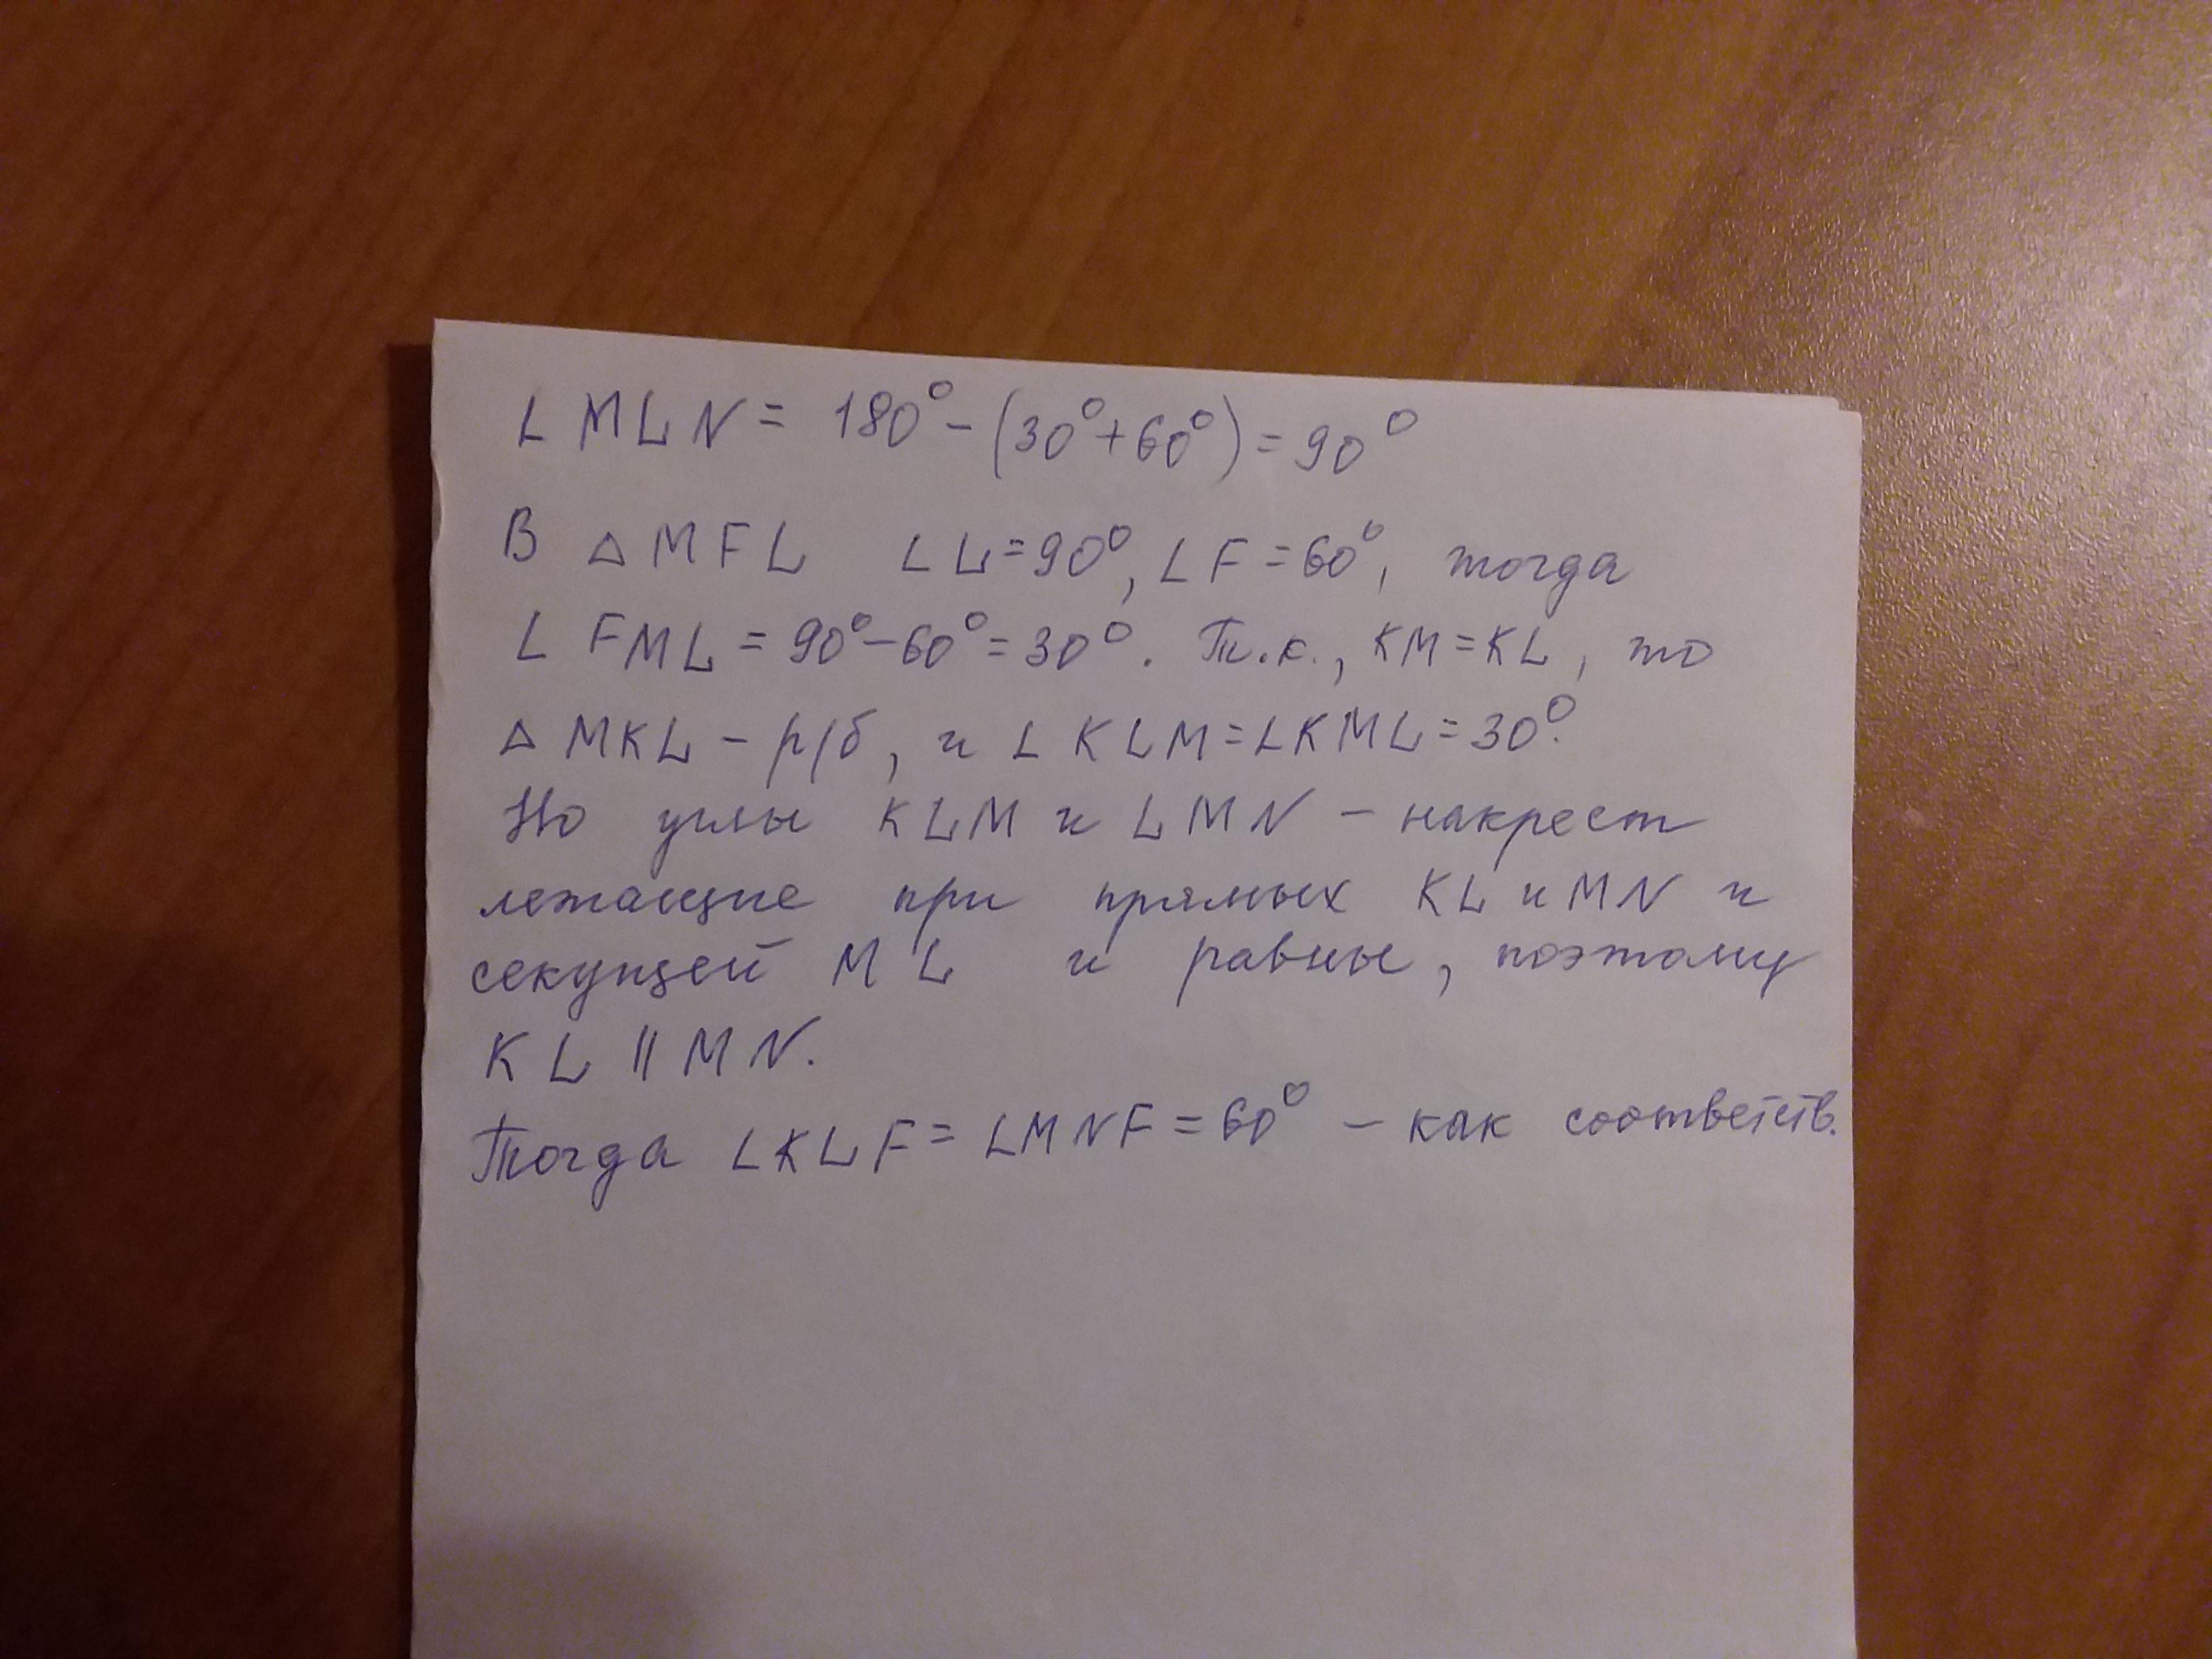 ∠ MLN = 180° - (30° + 60°) = 90°
В △ MFL ∠L = 90°, ∠F = 60°, тогда
∠ FML = 90° - 60° = 30°. Т.к., KM = KL, то
△ MKL - р/б, и ∠ KLM = ∠KML = 30°.
Но углы KLM и LMN - накрест
лежащие при прямых KL и MN и
секущей ML и равные, поэтому
KL || MN.
Тогда ∠KLF = ∠MNF = 60° - как соответств.